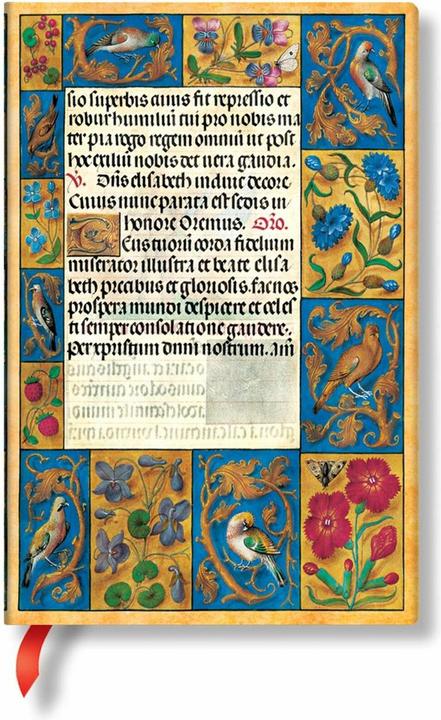 sio superbis fit repressio et
robur humiliũ tui pro nobis ma
ter pia rogo regem omniũ ut post
hoc exiliũ nobis det vera gaudia.
V. Dñs elisabeth induit decore
Cuius nunc parata est sedis in
honore Oremus. Oro.
Deus tuorũ corda fidelium
miserator illustra et beate elisa
beth precibus et gloriosis. fac nos
prospera mundi despicere et celes
ti semper consolatione gaudere.
Per xpristum dnm nostrum. am